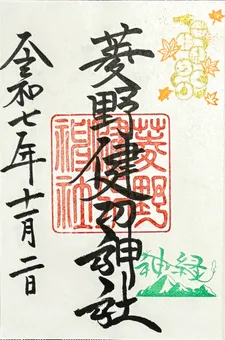 菱野健功神社
令和七年十一月二日
菱野
神社
神経